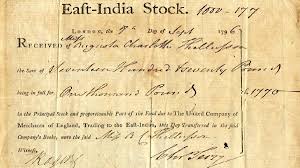 East-India Stock. 1000-177
LONDON, the 8th Day of Sept 1796
RECEIVED of Miss Augusta Charlotte Thellusson
the Sum of Seventeen Hundred Seventy Pounds
being One Thousand Pounds £1770
in the Principal Stock and proportionable Part of the Fund due to The United Company of
Merchants of England, Trading to the East-Indies, this Day Transferred in the said
Company's Books, unto the said Miss A C Thellusson
Witness,